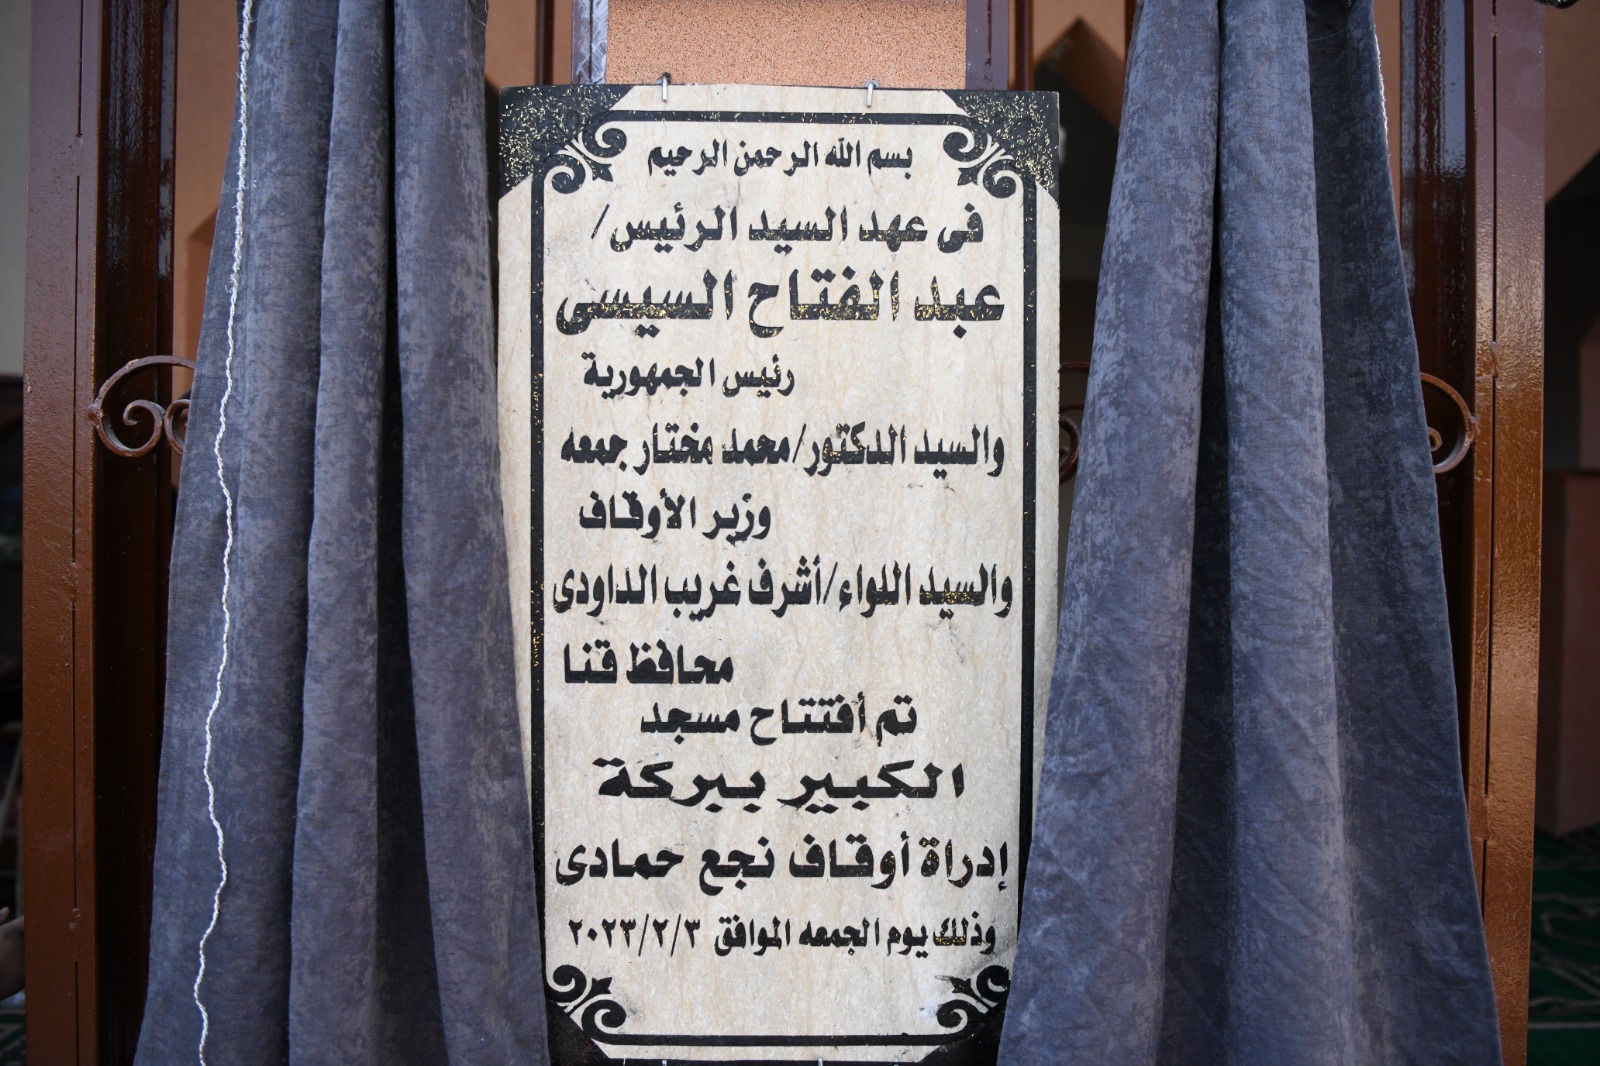 بسم الله الرحمن الرحيم
فى عهد السيد الرئيس/
عبد الفتاح السيسى
رئيس الجمهورية
والسيد الدكتور/محمد مختار جمعه
وزير الأوقاف
والسيد اللواء/أشرف غريب الداودى
محافظ قنا
تم أفتتاح مسجد
الكبير ببركة
إدراة أوقاف نجع حمادى
وذلك يوم الجمعه الموافق ٢٠٢٣/٢/٣